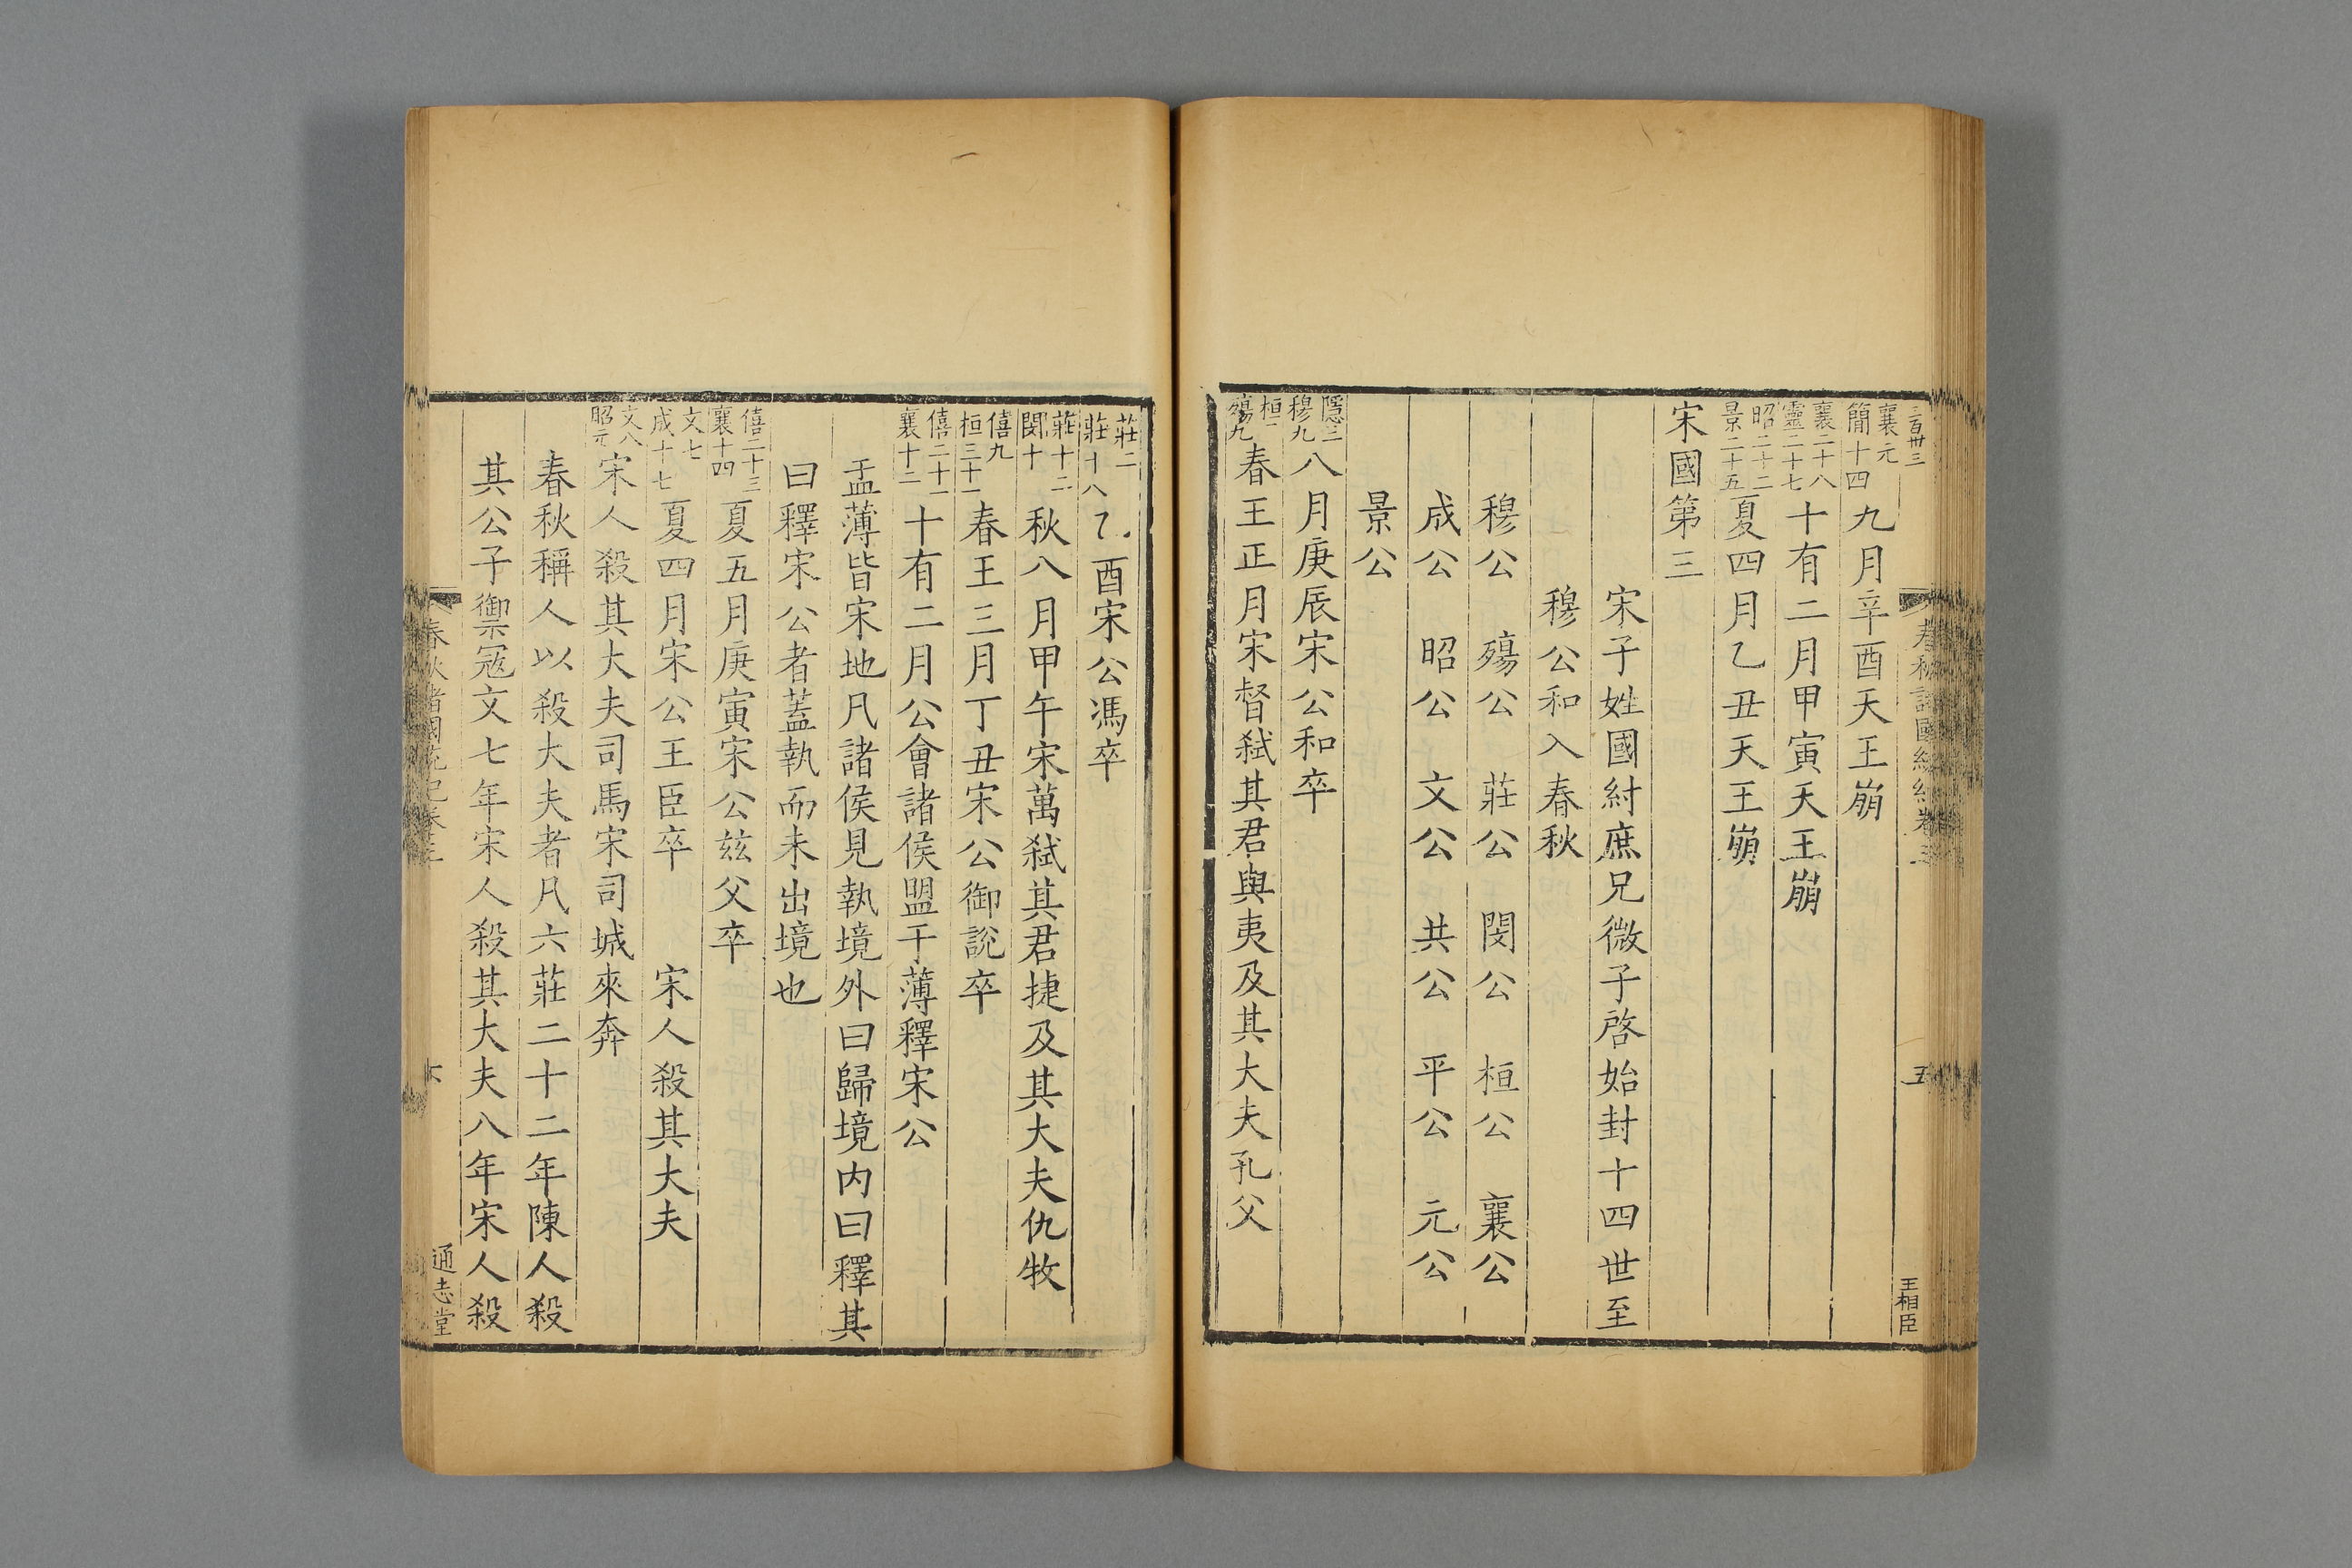 三百卅三
春秋諸國統紀卷三
五
王相臣
襄元
簡十四
九月辛酉天王崩
襄二十八
靈二十七
十有二月甲寅天王崩
昭二十二
景二十五
夏四月乙丑天王崩
宋國第三
宋子姓國紂庶兄微子啓始封十四世至
穆公和入春秋
穆公 殤公 莊公 閔公 桓公 襄公
成公 昭公 文公 共公 平公 元公
景公
隱三
穆九
八月庚辰宋公和卒
桓二
殤九
春王正月宋督弒其君與夷及其大夫孔父
莊二
莊十八
乙酉宋公馮卒
莊十二
閔十
秋八月甲午宋萬弒其君捷及其大夫仇牧
僖九
桓三十一
春王三月丁丑宋公御說卒
僖二十一
襄十二
十有二月公會諸侯盟于薄釋宋公
盂薄皆宋地凡諸侯見執境外曰歸境内曰釋其
曰釋宋公者蓋執而未出境也
僖二十三
襄十四
夏五月庚寅宋公茲父卒
文七
成十七
夏四月宋公王臣卒 宋人殺其大夫
文八
昭元
宋人殺其大夫司馬宋司城來奔
春秋稱人以殺大夫者凡六莊二十二年陳人殺
其公子禦寇文七年宋人殺其大夫八年宋人殺
春秋諸國統紀卷三
六
通志堂